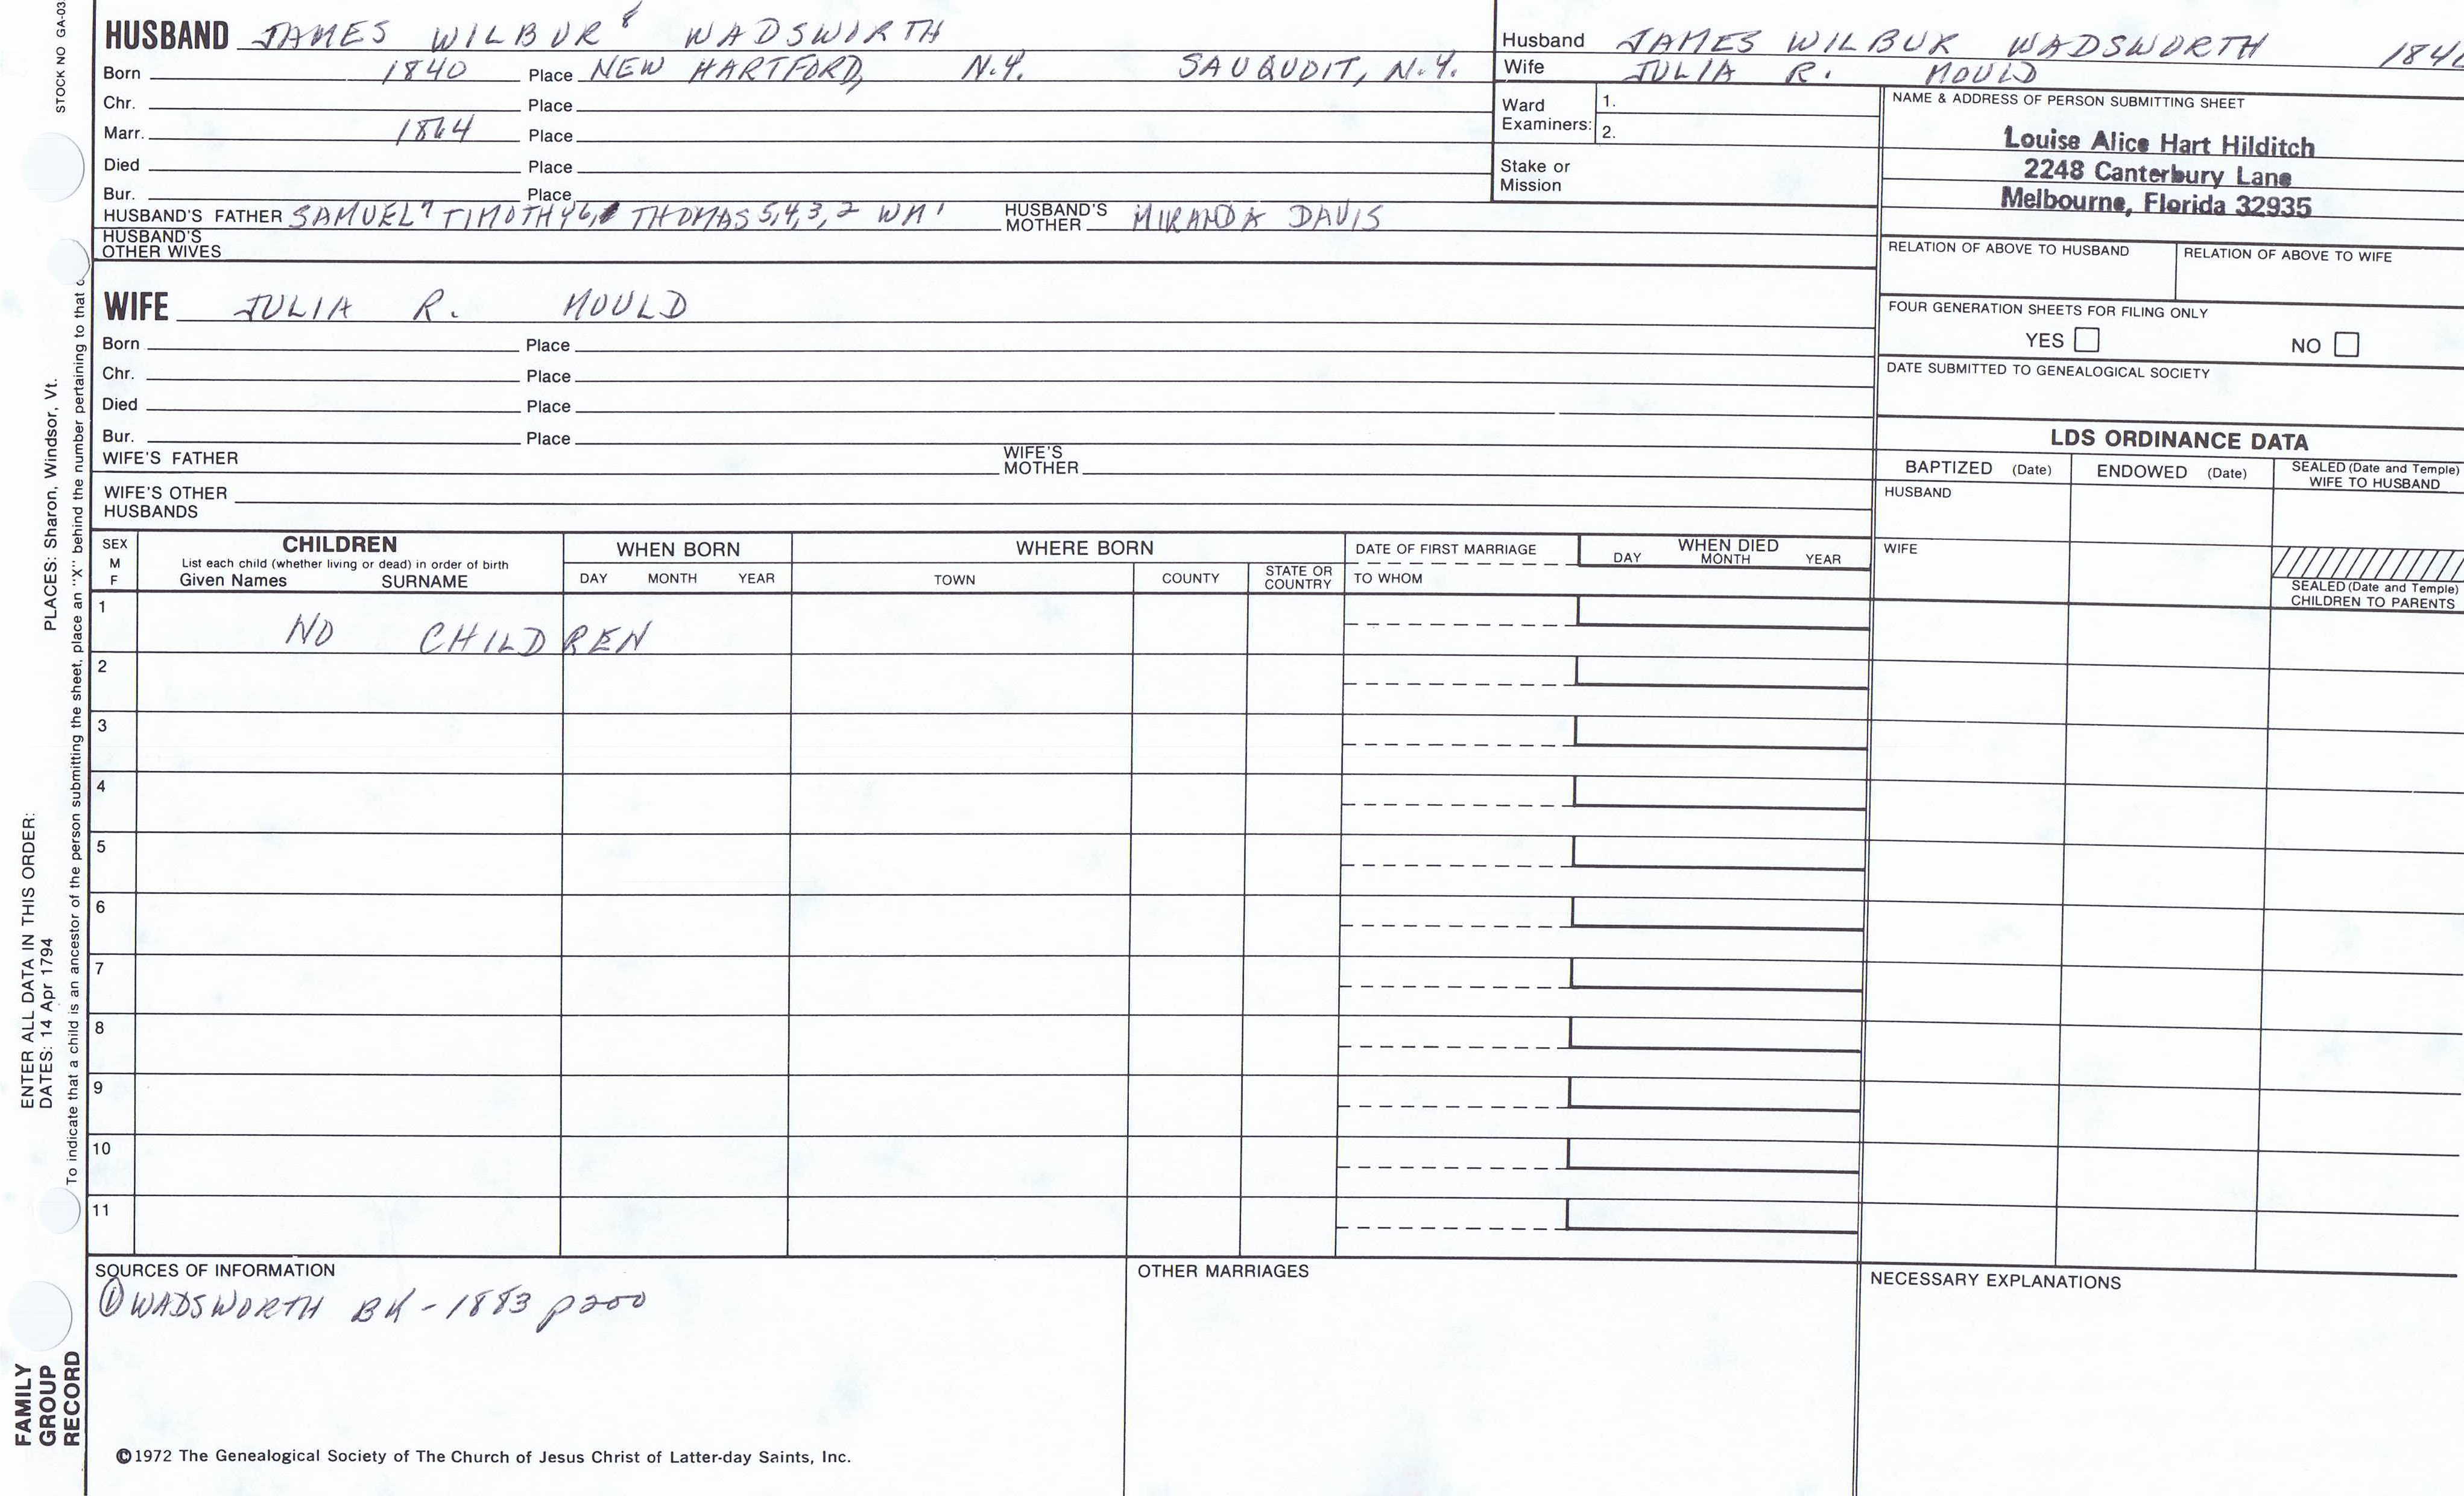 STOCK NO GA-03
HUSBAND JAMES WILBUR 8 WADSWORTH
Born 1840 Place NEW HARTFORD, N.Y. SAUQUOIT, N.Y.
Chr. Place
Marr. 1864 Place
Died Place
Bur. Place
HUSBAND'S FATHER SAMUEL 7 TIMOTHY 6, THOMAS 5,4,3,2 WM 1 HUSBAND'S MOTHER MIRANDA DAVIS
HUSBAND'S OTHER WIVES
Husband JAMES WILBUR WADSWORTH
Wife JULIA R. MOULD
Ward Examiners: 1.
2.
Stake or Mission
NAME & ADDRESS OF PERSON SUBMITTING SHEET
Louise Alice Hart Hilditch
2248 Canterbury Lane
Melbourne, Florida 32935
RELATION OF ABOVE TO HUSBAND RELATION OF ABOVE TO WIFE
FOUR GENERATION SHEETS FOR FILING ONLY
YES NO
DATE SUBMITTED TO GENEALOGICAL SOCIETY
WIFE JULIA R. MOULD
Born Place
Chr. Place
Died Place
Bur. Place
WIFE'S FATHER WIFE'S MOTHER
WIFE'S OTHER HUSBANDS
LDS ORDINANCE DATA
BAPTIZED (Date) ENDOWED (Date) SEALED (Date and Temple) WIFE TO HUSBAND
HUSBAND
WIFE
SEALED (Date and Temple) CHILDREN TO PARENTS
SEX M F
CHILDREN
List each child (whether living or dead) in order of birth
Given Names SURNAME
WHEN BORN
DAY MONTH YEAR
WHERE BORN
TOWN COUNTY STATE OR COUNTRY
DATE OF FIRST MARRIAGE
TO WHOM
WHEN DIED
DAY MONTH YEAR
1 NO CHILDREN
2
3
4
5
6
7
8
9
10
11
SOURCES OF INFORMATION
① WADSWORTH BK - 1883 p200
OTHER MARRIAGES
NECESSARY EXPLANATIONS
©1972 The Genealogical Society of The Church of Jesus Christ of Latter-day Saints, Inc.
FAMILY GROUP RECORD
ENTER ALL DATA IN THIS ORDER:
DATES: 14 Apr 1794 PLACES: Sharon, Windsor, Vt.
To indicate that a child is an ancestor of the person submitting the sheet, place an "X" behind the number pertaining to that